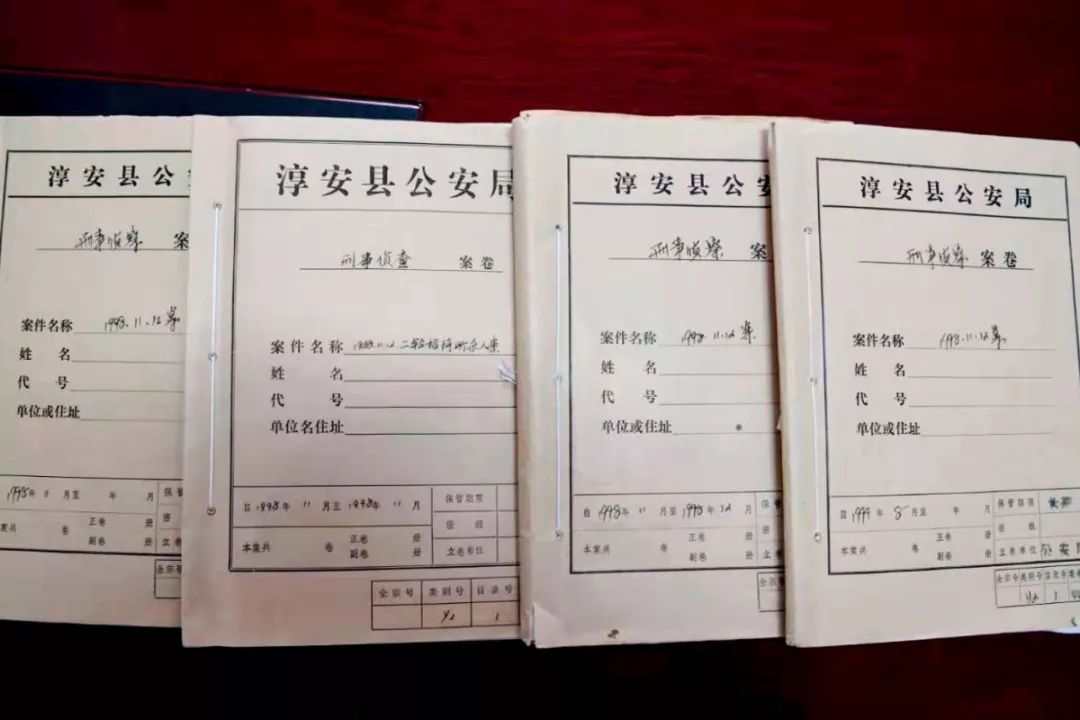 淳安县公
刑事侦察 案
案件名称 1998.11.12案
姓 名
代 号
单位或住址
1998年 11 月至 年 月
保
密
立卷
案共 卷 正卷 册
副卷 册
全宗号
淳安县公安局
刑事侦查 案卷
案件名称 1998.11.12二轻招待所杀人案
姓 名
代 号
单位名住址
自 1998年 11 月至 1998年 11 月
保管期限
密 级
本案共 卷 正卷 册
副卷 册
立卷单位
全宗号 类别号 目录号
1
淳安县公安
刑事侦察 案
案件名称 1998.11.12案
姓 名
代 号
单位或住址
自 1998年 11 月至 1998年 12 月
保
密
本案共 卷 正卷 册
副卷 册
立卷
全宗
淳安县公安局
刑事侦察 案卷
案件名称 1998.11.12案
姓 名
代 号
单位或住址
自 1999年 8 月至 年 月
保管期限
密 级
本案共 卷 正卷 册
副卷 册
立卷单位 公安
全宗号 类别号 目录号 案卷
1